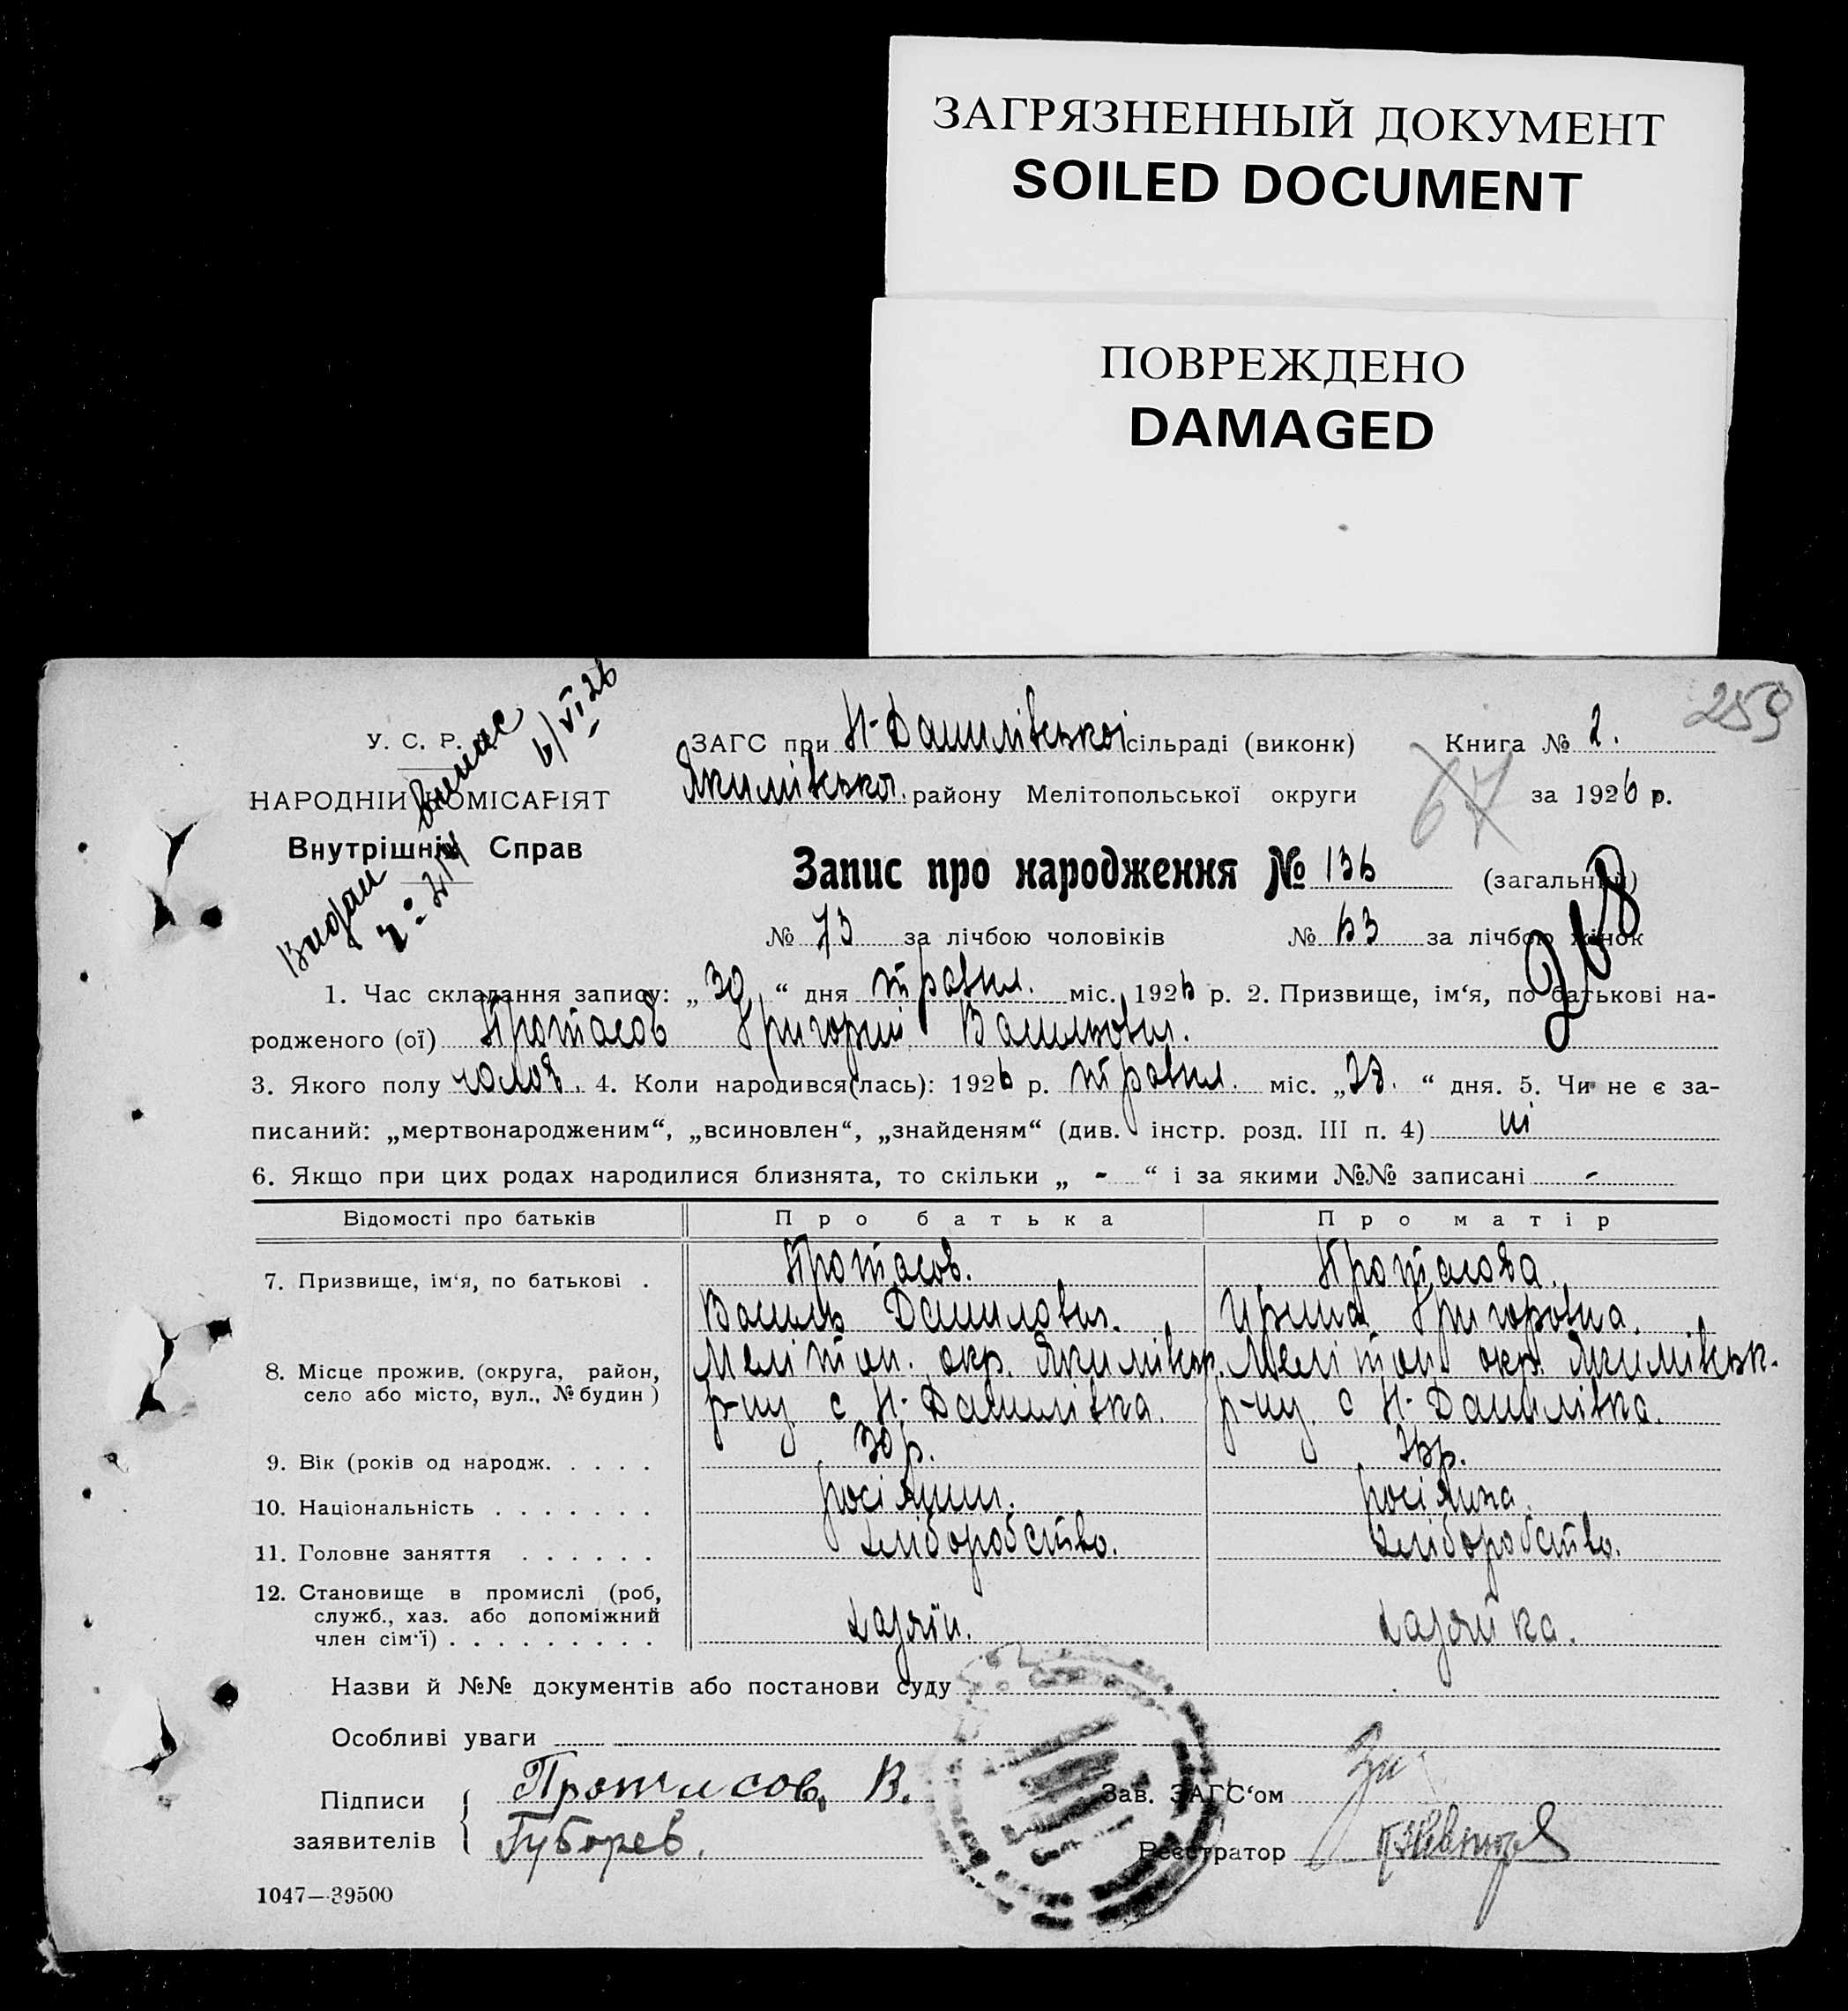 ЗАГРЯЗНЕННЫЙ ДОКУМЕНТ
SOILED DOCUMENT
ПОВРЕЖДЕНО
DAMAGED
259
У. С. Р. Р.
НАРОДНІЙ КОМІСАРІЯТ
Внутрішніх Справ
Видан випис
6/VI 26
ЗАГС при Н-Данилівської сільраді (виконк) Книга № 2.
Якимівськ. району Мелітопольської округи 67 за 1926 р.
Запис про народження № 136 (загальний)
№ 73 за лічбою чоловіків № 63 за лічбою жінок
218
1. Час складання запису: „30“ дня травня. міс. 1926 р. 2. Призвище, ім‘я, по батькові на-
родженого (ої) Протасов Григорій Васильович.
3. Якого полу чолов. 4. Коли народився(лась): 1926 р. травня. міс. „23.“ дня. 5. Чи не є за-
писаний: „мертвонародженим“, „всиновлен“, „знайденям“ (див. інстр. розд. III п. 4) ні
6. Якщо при цих родах народилися близнята, то скільки „ - “ і за якими №№ записані -
Відомості про батьків Про батька Про матір
7. Призвище, ім‘я, по батькові . Протасов. Протасова.
Василь Данилович. Ирина Григоровна.
8. Місце прожив. (округа, район, Мелітоп. окр. Якимівськ. Мелітоп. окр. Якимівськ.
село або місто, вул., № будин) р-ну с Н-Данилівка. р-ну. с Н-Данилівка.
9. Вік (років од народж. . . . . 30 р. 26р.
10. Національність . . . . . . . росіянин. росіянка.
11. Головне заняття . . . . . . хліборобство. хліборобство.
12. Становище в промислі (роб,
служб., хаз. або допоміжний
член сім‘ї) . . . . . . . . . хазяїн. хазяйка.
Назви й №№ документів або постанови суду
Особливі уваги
Підписи Протасов, В. Зав. ЗАГС‘ом
заявителів Губорев. Реєстратор
1047—39500